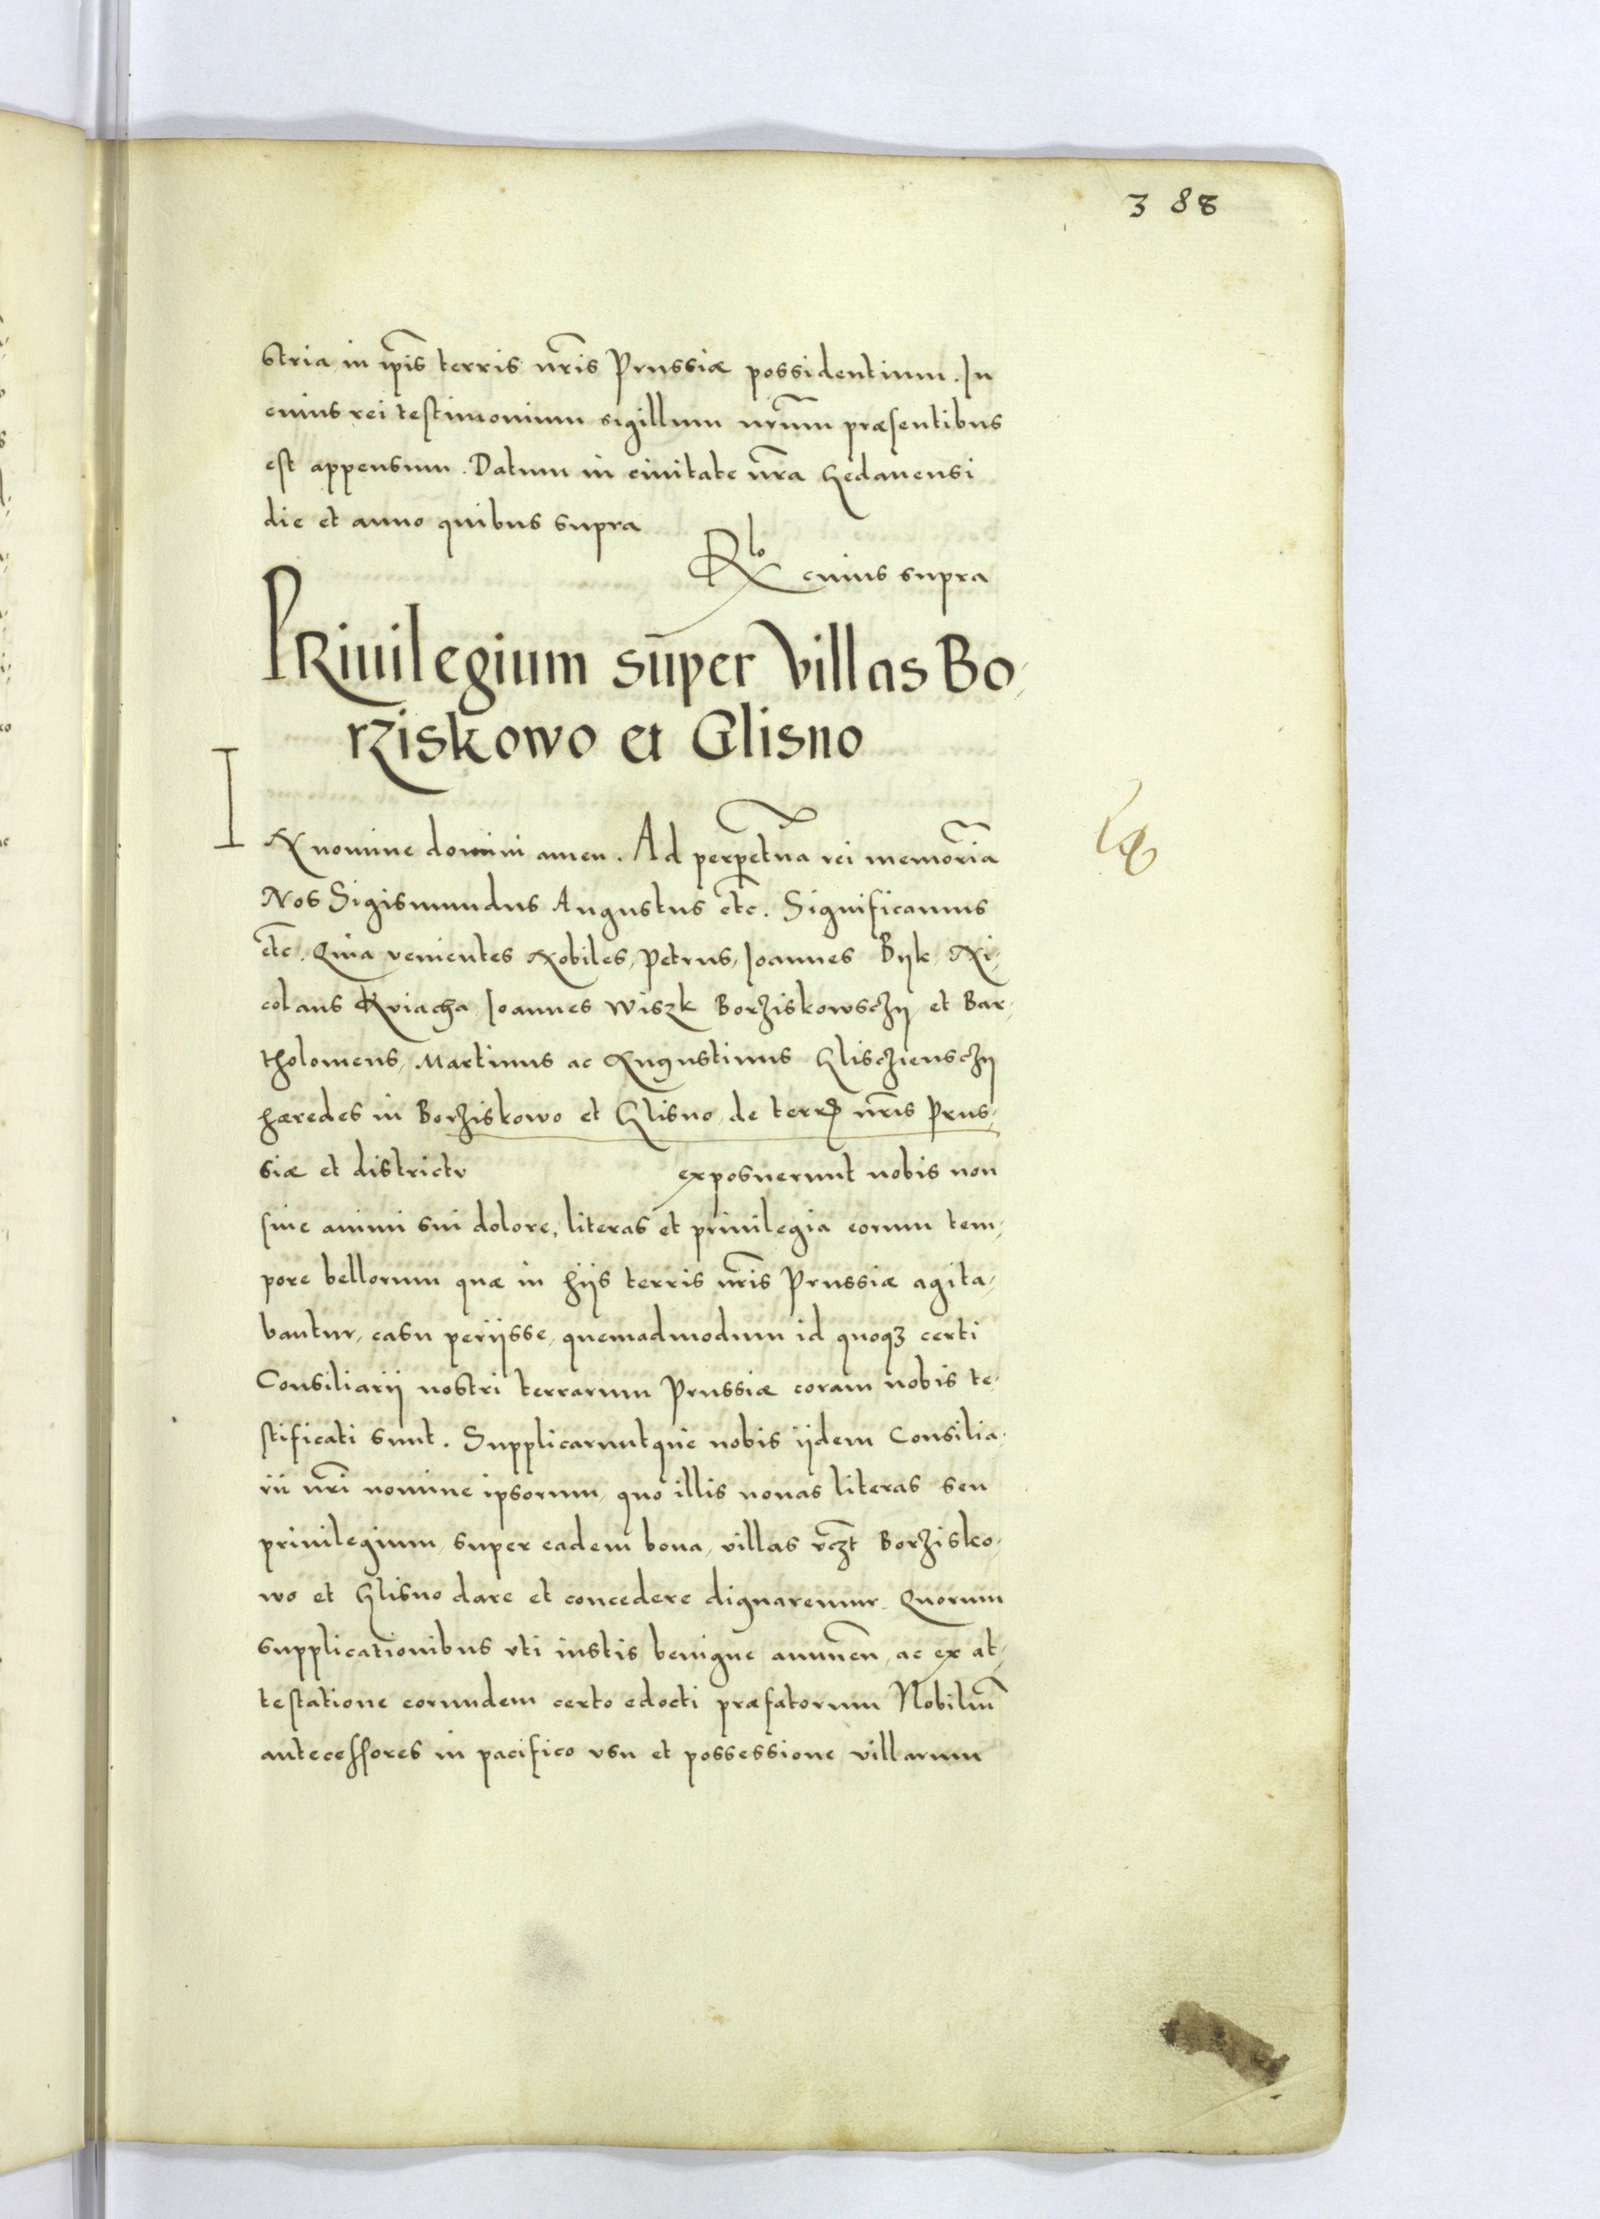 388
stria in ip̄is terris nr̄is Prussiæ possidentium. In
cuius rei testimonium sigillum nr̄um præsentibus
est appensum. Datum in ciuitate nr̄a Gedanensi
die et anno quibus supra
Rlo cuius supra
PRiuilegium super villas Bo-
rziskowo et Glisno
IN nomine domini amen. Ad perpetuā rei memoriā
Nos Sigismundus Augustus etc̄. Significamus
etc̄. Quia venientes Nobiles, Petrus, Joannes Byk, Ni-
colaus Kviacha Joannes Wiszk Borziskowsczy et Bar-
tholomeus, Martinus ac Augustinus Gliscziensczy
hæredes in Borziskowo et Glisno, de terrꝭ nr̄is Prus-
siæ et districtv exposuerunt nobis non
sine animi sui dolore, literas et priuilegia eorum tem-
pore bellorum quæ in hijs terris nr̄is Prussiæ agita-
bantur, casu perijsse, quemadmodum id quoqꝫ certi
Consiliarij nostri terrarum Prussiæ coram nobis te-
stificati sunt. Supplicaruntque nobis ijdem Consilia-
rii nr̄i nomine ipsorum, quo illis nouas literas seu
priuilegium, super eadem bona, villas vꝫt Borzisko-
wo et Glisno dare et concedere dignaremur. Quorum
supplicationibus vti iustis benigne annuen̄, ac ex at-
testatione eorundem certo edocti præfatorum Nobiliū
antecessores in pacifico vsu et possessione villarum